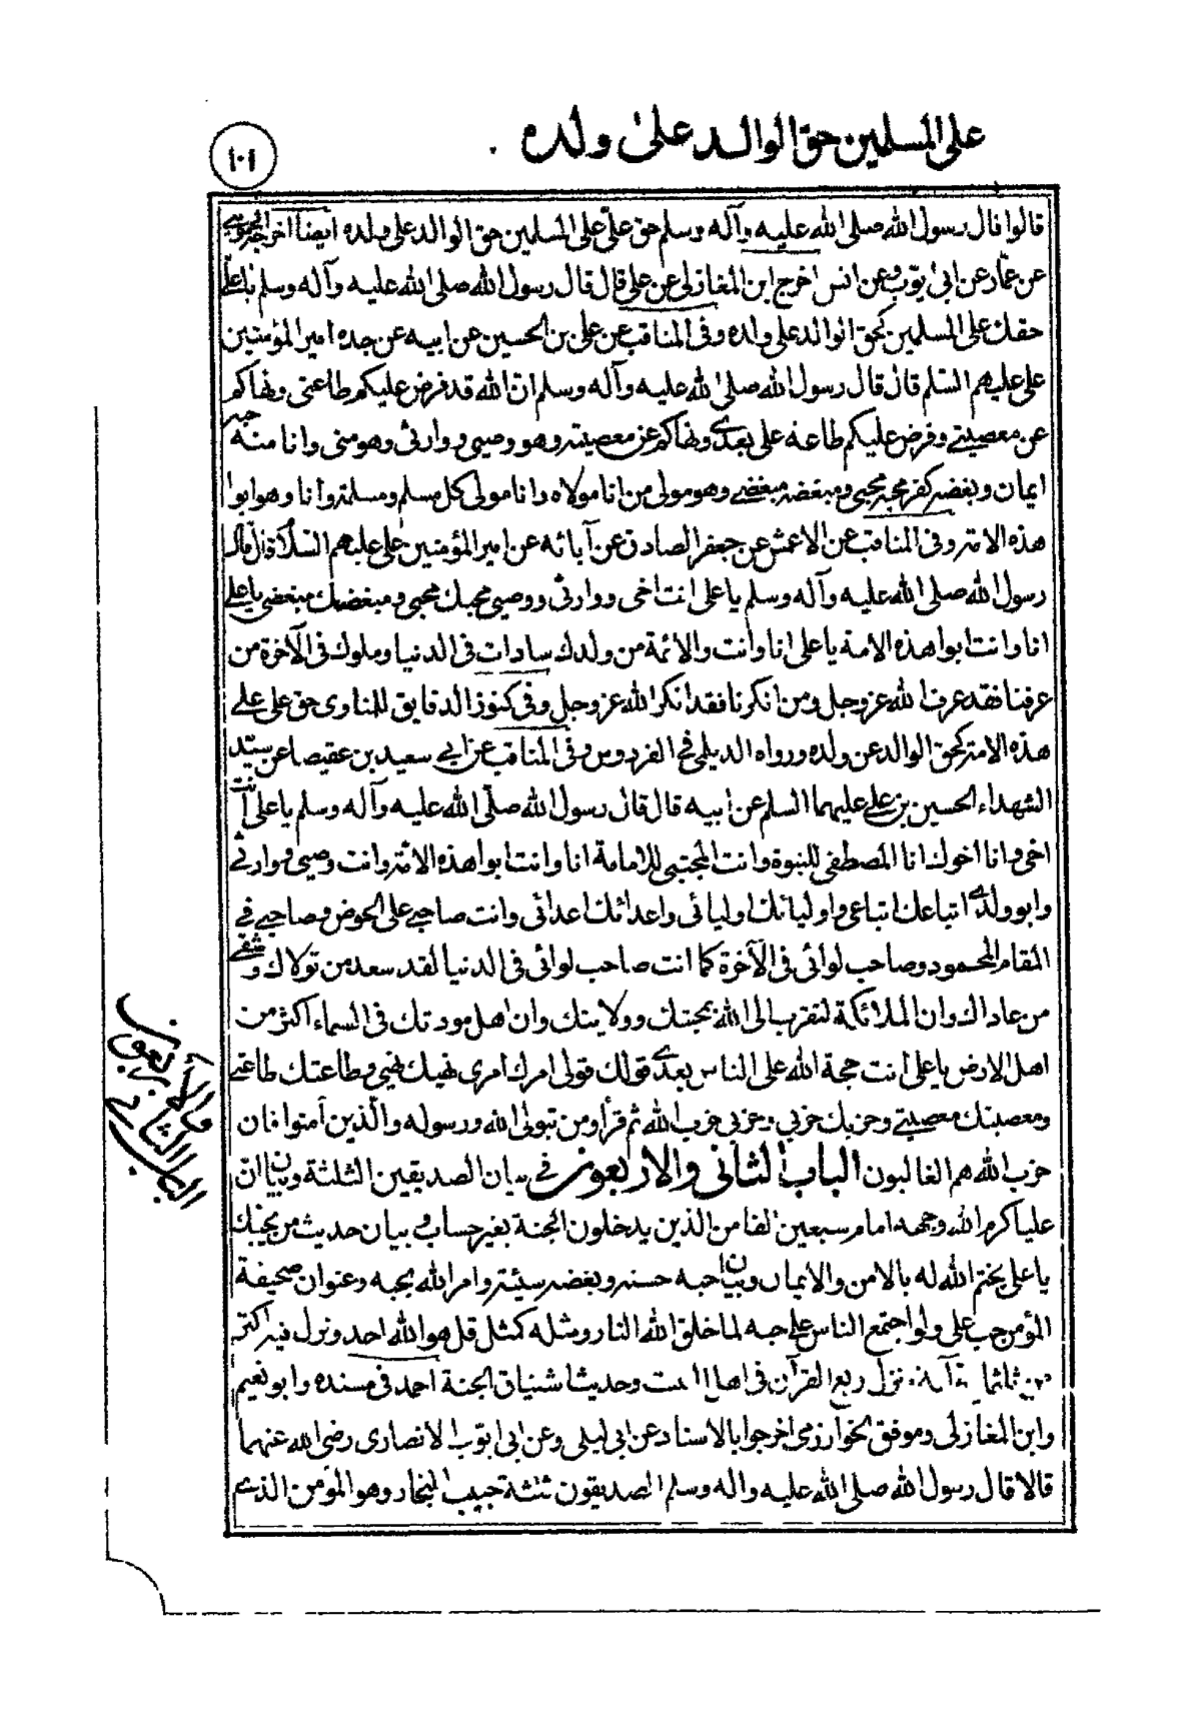 على المسلمين حق الوالد على ولده
١٠١
قالوا قال رسول الله صلى الله عليه وآله وسلم حق على على المسلمين حق الوالد على ولده ايضا اخرجه الحمويني
عن عمار عن ابي ايوب وعن انس اخرج ابن المغازلي عن علي قال قال رسول الله صلى الله عليه وآله وسلم يا علي
حقك على المسلمين كحق الوالد على ولده وفي المناقب عن علي بن الحسين عن ابيه عن جده امير المؤمنين
علي عليهم السلم قال قال رسول الله صلى الله عليه وآله وسلم ان الله قد فرض عليكم طاعتي ونهاكم
عن معصيتي وفرض عليكم طاعة علي بعدي ونهاكم عن معصيته وهو وصيي ووارثي وهو مني وانا منه حبه
ايمان وبغضه كفر محبه محبي ومبغضه مبغضي وهو مولى من انا مولاه وانا مولى كل مسلم ومسلمة وانا وهو ابوا
هذه الامة وفي المناقب عن الاعمش عن جعفر الصادق عن آبائه عن امير المؤمنين علي عليهم السلام قال قال
رسول الله صلى الله عليه وآله وسلم يا علي انت اخي ووارثي ووصيي محبك محبي ومبغضك مبغضي يا علي
انا وانت ابوا هذه الامة يا علي انا وانت والائمة من ولدك سادات في الدنيا وملوك في الآخرة من
عرفنا فقد عرف الله عز وجل ومن انكرنا فقد انكر الله عز وجل وفي كنوز الدقايق للمناوى حق علي على
هذه الامة كحق الوالد عن ولده ورواه الديلمي في الفردوس وفي المناقب عن ابي سعيد بن عقيصا عن سيد
الشهداء الحسين بن علي عليهما السلم عن ابيه قال قال رسول الله صلى الله عليه وآله وسلم يا علي انت
اخي وانا اخوك انا المصطفى للنبوة وانت المجتبى للامامة انا وانت ابوا هذه الامة وانت وصيي ووارثي
وابو ولدي اتباعك اتباعي واوليائك اوليائي واعدائك اعدائي وانت صاحبي على الحوض وصاحبي في
المقام المحمود وصاحب لوائي في الآخرة كما انت صاحب لوائي في الدنيا لقد سعد من تولاك وشقي
من عاداك وان الملائكة لتقرب الى الله بمحبتك وولايتك وان اهل مودتك في السماء اكثر من
اهل الارض يا علي انت حجة الله على الناس بعدي قولك قولي امرك امري نهيك نهيي وطاعتك طاعتي
ومعصيتك معصيتي وحزبك حزبي وحزبي حزب الله ثم قرأ ومن يتولى الله ورسوله والذين آمنوا فان
حزب الله هم الغالبون الباب الثاني والاربعون في بيان الصديقين الثلثة وبيان ان
عليا كرم الله وجهه امام سبعين الفا من الذين يدخلون الجنة بغير حساب وبيان حديث من يحبك
يا علي يختم الله له بالامن والايمان وبيان حبه حسنة وبغضه سيئة وامر الله بحبه وعنوان صحيفة
المؤمن حب علي ولو اجتمع الناس على حبه لما خلق الله النار ومثله كمثل قل هو الله احد ونزل فيه اكثر
من ثلثمائة آية ونزل ربع القرآن في اهل البيت وحديث اشتياق الجنة احمد في مسنده وابو نعيم
وابن المغازلي وموفق الخوارزمي اخرجوا بالاسناد عن ابي ليلى وعن ابي ايوب الانصاري رضي الله عنهما
قالا قال رسول الله صلى الله عليه واله وسلم الصديقون ثلثة حبيب النجار وهو المؤمن الذي
الباب الثاني
والأربعون